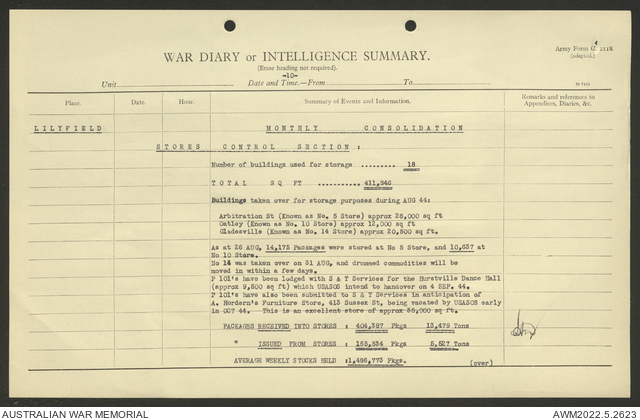 Army Form C. 2118
(adapted.)
WAR DIARY or INTELLIGENCE SUMMARY.
(Erase heading not required).
-10-
Unit Date and Time.—From To
Place. Date. Hour. Summary of Events and Information. Remarks and references to Appendices, Diaries, &c.
LILYFIELD MONTHLY CONSOLIDATION
STORES CONTROL SECTION :
Number of buildings used for storage ......... 18
TOTAL SQ FT ........... 411,846
Buildings taken over for storage purposes during AUG 44:
Arbitration St (Known as No. 5 Store) approx 28,000 sq ft
Oatley (Known as No. 10 Store) approx 12,000 sq ft
Gladesville (Known as No. 14 Store) approx 20,500 sq ft.
As at 26 AUG, 14,175 Packages were stored at No 5 Store, and 10,637 at
No 10 Store.
No 14 was taken over on 31 AUG, and drummed commodities will be
moved in within a few days.
F 101's have been lodged with S & T Services for the Hurstville Dance Hall
(approx 9,500 sq ft) which USASOS intend to handover on 4 SEP. 44.
F 101's have also been submitted to S & T Services in anticipation of
A. Hordern's Furniture Store, 413 Sussex St, being vacated by USASOS early
in OCT 44. This is an excellent store of approx 35,000 sq ft.
PACKAGES RECEIVED INTO STORES : 404,387 Pkgs 13,479 Tons
" ISSUED FROM STORES : 165,834 Pkgs 5,527 Tons
AVERAGE WEEKLY STOCKS HELD : 1,486,773 Pkgs. (over)
AUSTRALIAN WAR MEMORIAL AWM2022.5.2623